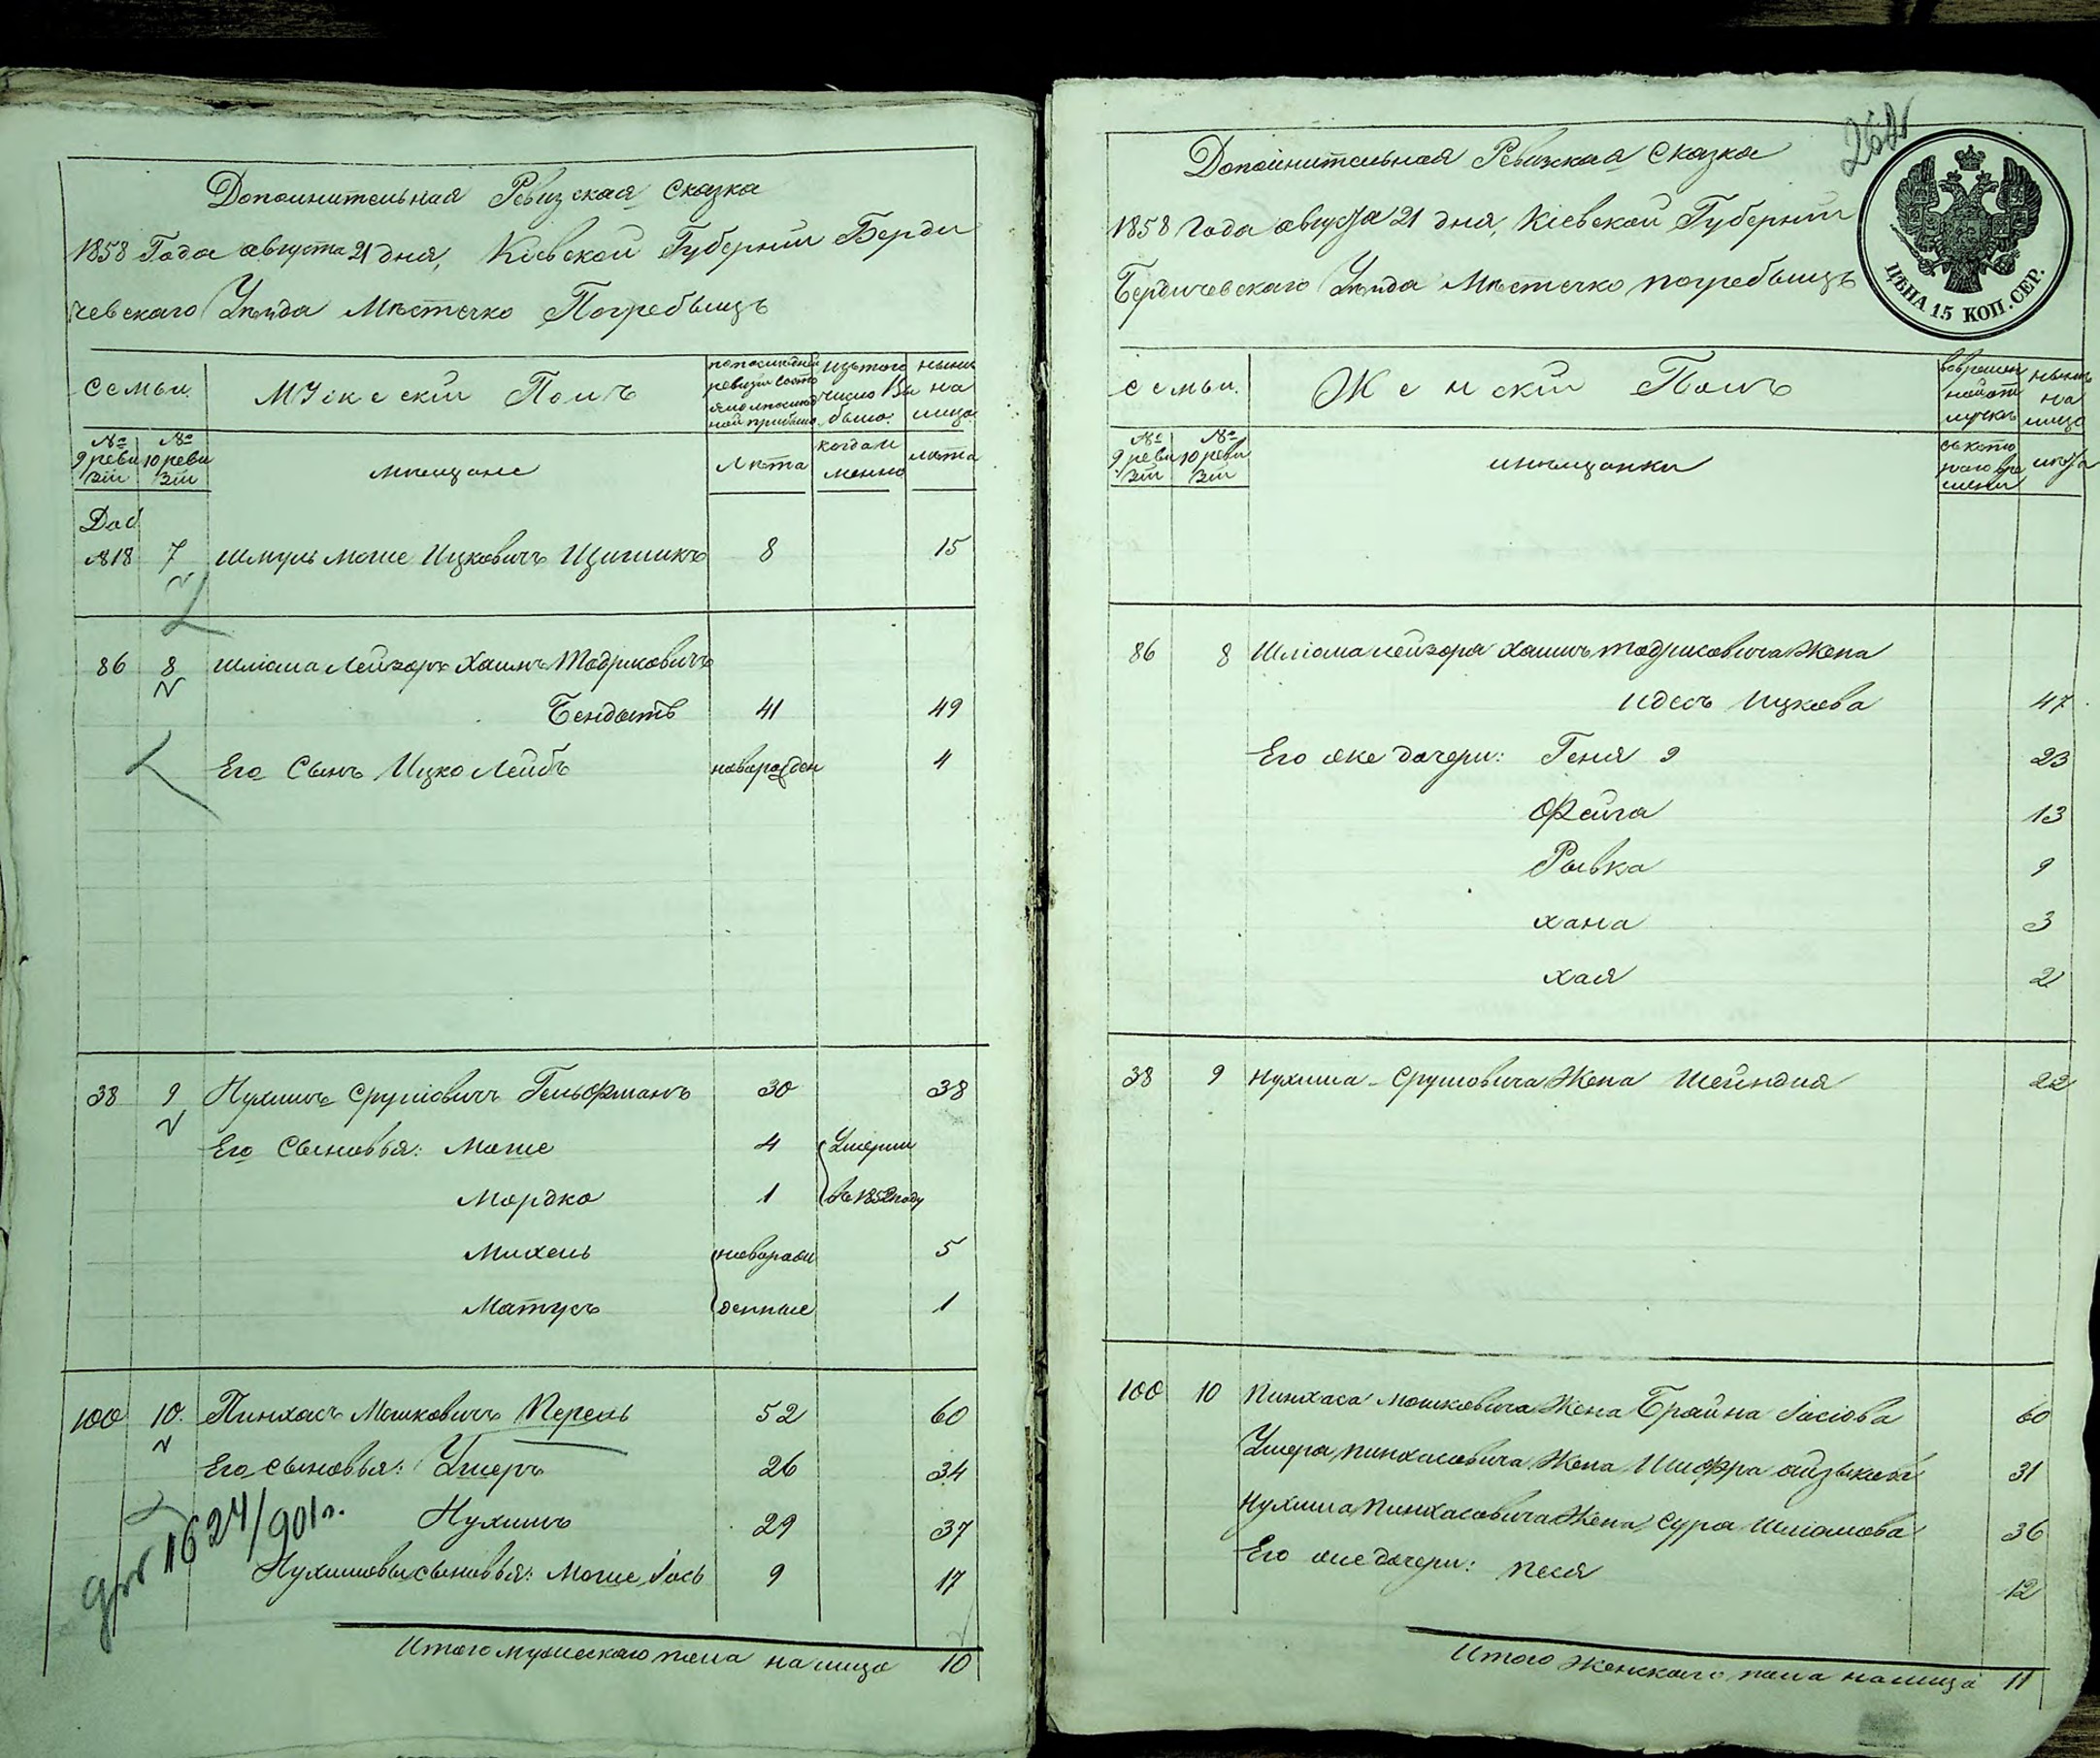 Дополнительная Ревизская Сказка
1858 Года августа 21 дня, Кіевской Губерніи Берди
чевскаго Уѣзда Мѣстечко Погребыщъ
Семьи
Мужескій Полъ
по последней ревизіи состо
изъ того число выбыло
нынѣ на лицо
№ 9 ревизіи
№ 10 ревизіи
мѣщане
Лѣта
когда именно
лѣта
№18 7 Шмуль Моше Ицковичъ 8 15
86 8 Шліома Лейзоръ Хаимъ Тодрисовичъ
Бендитъ 41 49
Его Сынъ Ицко Лейбъ новорожден 4
38 9 Нухимъ Сруліовичъ Гельфманъ 30 38
Его Сыновья: Моше 4 Умерли
Мордко 1 въ 1852 году
Михель новорож 5
Матусъ денные 1
100 10. Пинхасъ Мошковичъ Перель 52 60
Его сыновья: Ушеръ 26 34
Нухимъ 29 37
Нухимовы сыновья: Моше Іось 9 17
1624/901 г.
Итого мужескаго пола на лицо 10
264
Дополнительная Ревизская Сказка
1858 Года августа 21 дня, Кіевской Губерніи
Бердичевскаго Уѣзда Мѣстечко Погребыщъ
ЦѢНА 15 КОП. СЕР.
семьи.
Женскій Полъ
во временной отлучкѣ
нынѣ на лицо
№ 9 ревизіи
№ 10 ревизіи
мѣщанки
съ котораго времени
лѣта
86 8 Шліома Лейзора Хаимъ Тодрисовича Жена
Идесъ Ицкова 47
Его же дочери: Геня 23
Фейга 13
Рывка 9
Хана 3
Хая 2
38 9 Нухима Сруловича Жена Шейндля 22
100 10 Пинхаса Мошковича Жена Брайна Іосіова 60
Ушера Пинхасовича Жена Шифра Айзыкова 31
Нухима Пинхасовича Жена Сура Шліомова 36
Его же дочери: Песя 12
Итого женскаго пола на лицо 11